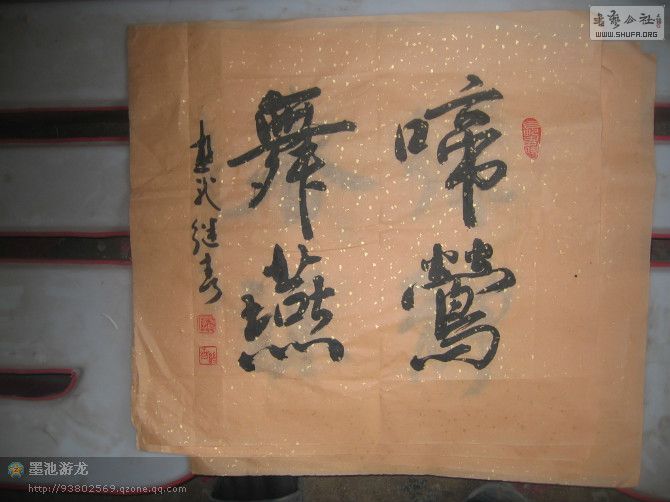 啼鶯
舞燕
继春
书艺公社
WWW.SHUFA.ORG
墨池游龙
http://93802569.qzone.qq.com